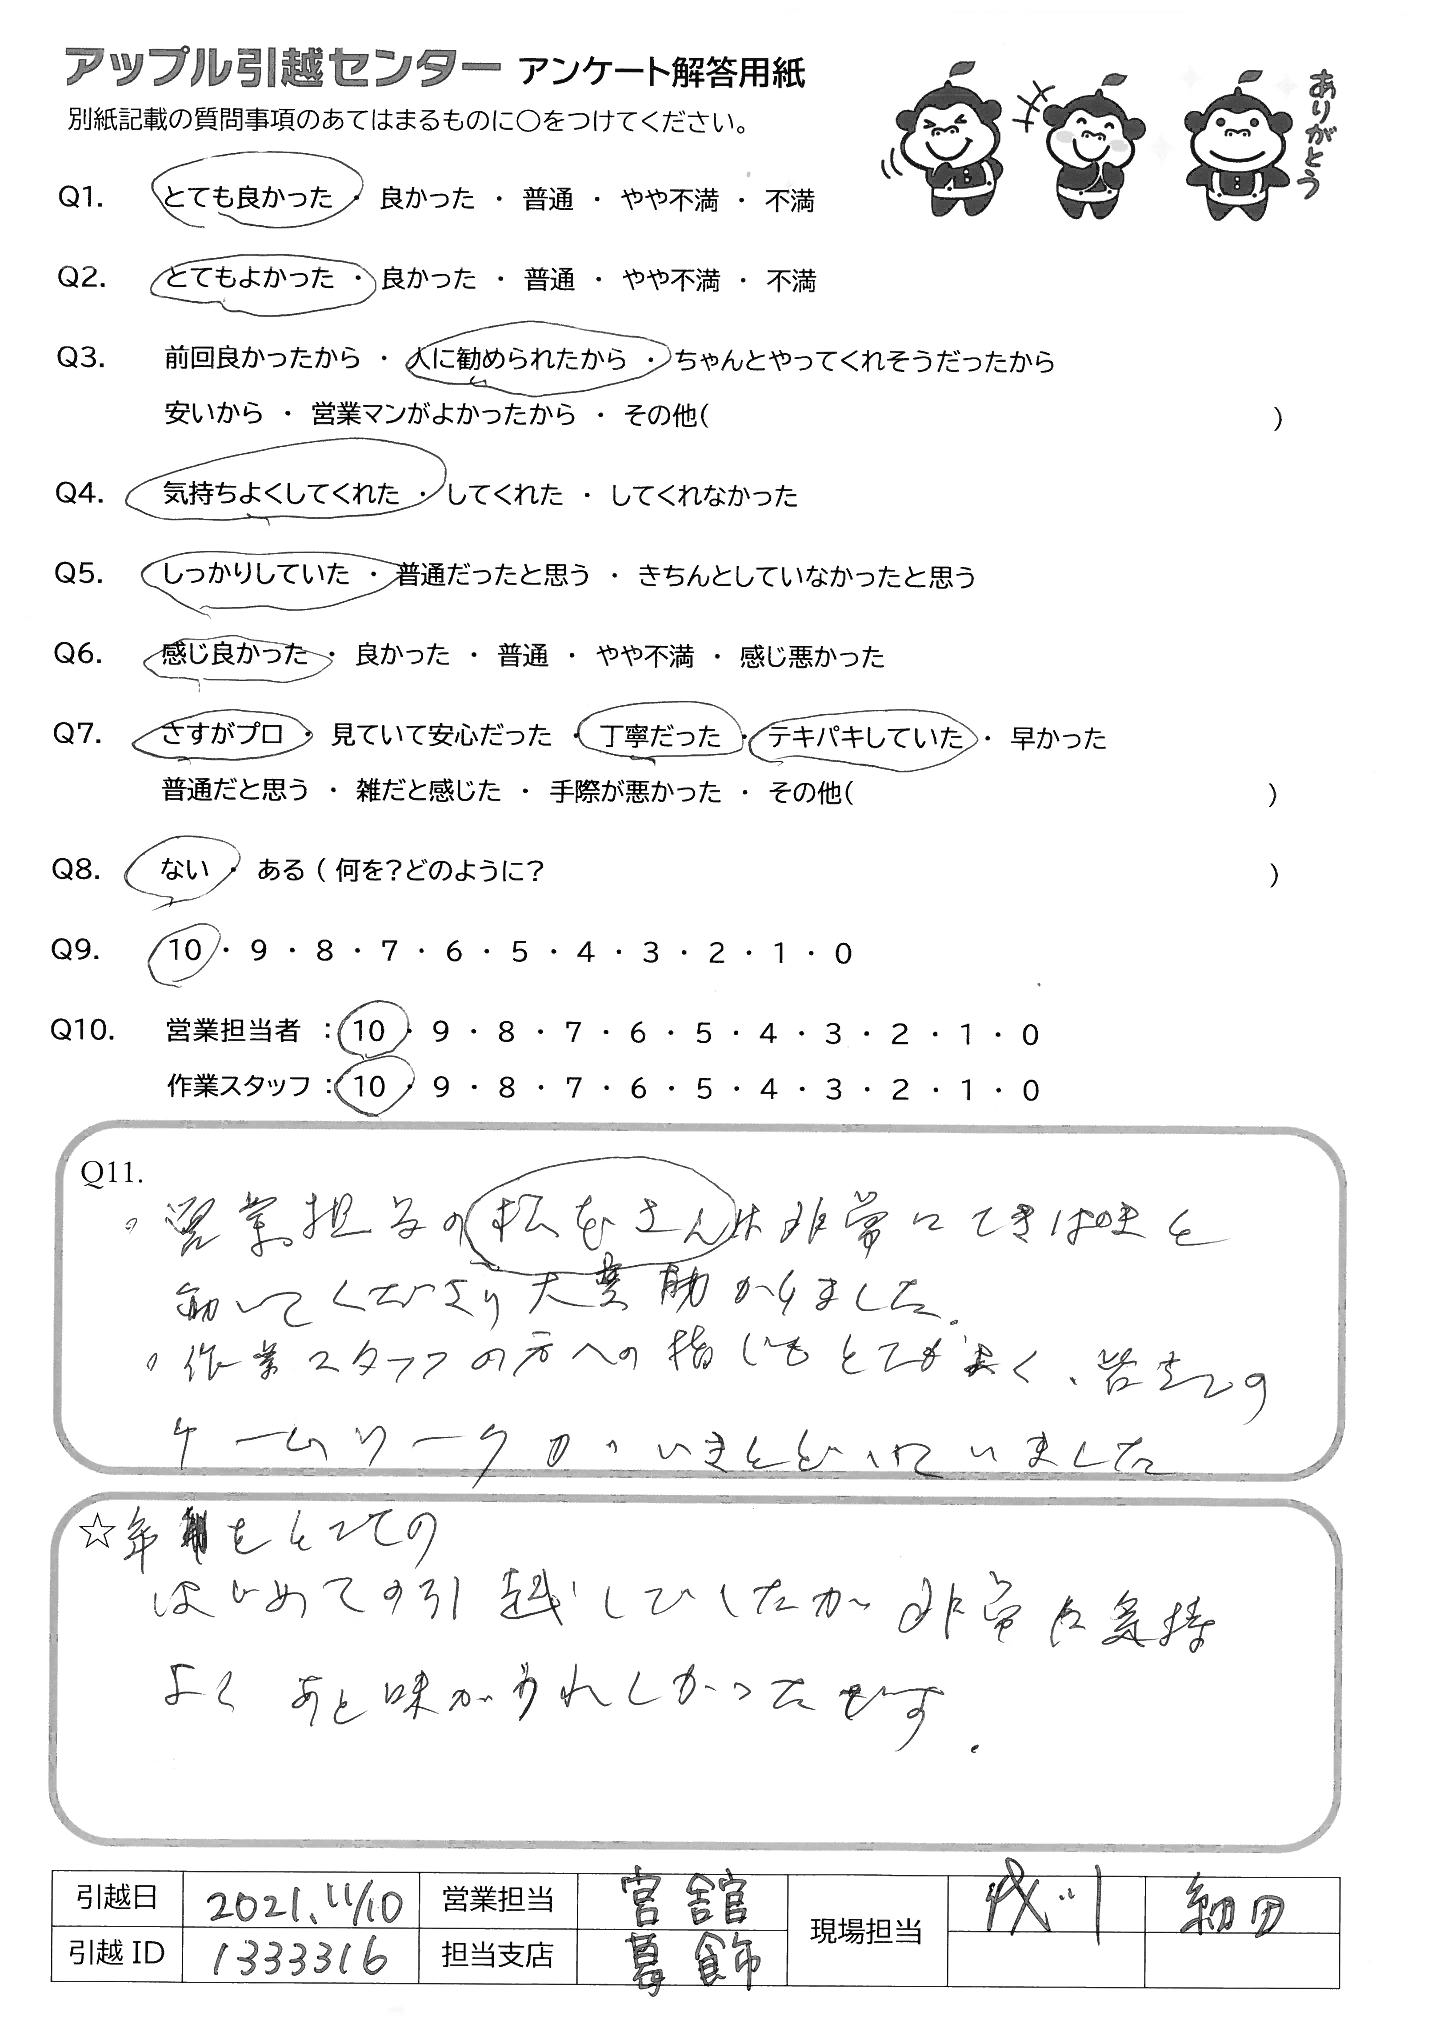 アップル引越センター アンケート解答用紙
別紙記載の質問事項のあてはまるものに○をつけてください。
ありがとう
Q1. とても良かった ・ 良かった ・ 普通 ・ やや不満 ・ 不満
Q2. とてもよかった ・ 良かった ・ 普通 ・ やや不満 ・ 不満
Q3. 前回良かったから ・ 人に勧められたから ・ ちゃんとやってくれそうだったから
安いから ・ 営業マンがよかったから ・ その他( )
Q4. 気持ちよくしてくれた ・ してくれた ・ してくれなかった
Q5. しっかりしていた ・ 普通だったと思う ・ きちんとしていなかったと思う
Q6. 感じ良かった ・ 良かった ・ 普通 ・ やや不満 ・ 感じ悪かった
Q7. さすがプロ ・ 見ていて安心だった ・ 丁寧だった ・ テキパキしていた ・ 早かった
普通だと思う ・ 雑だと感じた ・ 手際が悪かった ・ その他( )
Q8. ない ・ ある ( 何を?どのように? )
Q9. 10 ・ 9 ・ 8 ・ 7 ・ 6 ・ 5 ・ 4 ・ 3 ・ 2 ・ 1 ・ 0
Q10. 営業担当者 : 10 ・ 9 ・ 8 ・ 7 ・ 6 ・ 5 ・ 4 ・ 3 ・ 2 ・ 1 ・ 0
作業スタッフ : 10 ・ 9 ・ 8 ・ 7 ・ 6 ・ 5 ・ 4 ・ 3 ・ 2 ・ 1 ・ 0
Q11.
・営業担当の さんは非常にてきぱきと
動いてくださり大変助かりました。
・作業スタッフの方への指じもとてもよく、皆さんの
チームワークが いきとどいていました
☆年 をとっての
はじめての引越しでしたが 非常に気持
よく あと味がうれしかったです.
引越日 2021.11/10 営業担当 宮舘 現場担当 細田
引越ID 1333316 担当支店